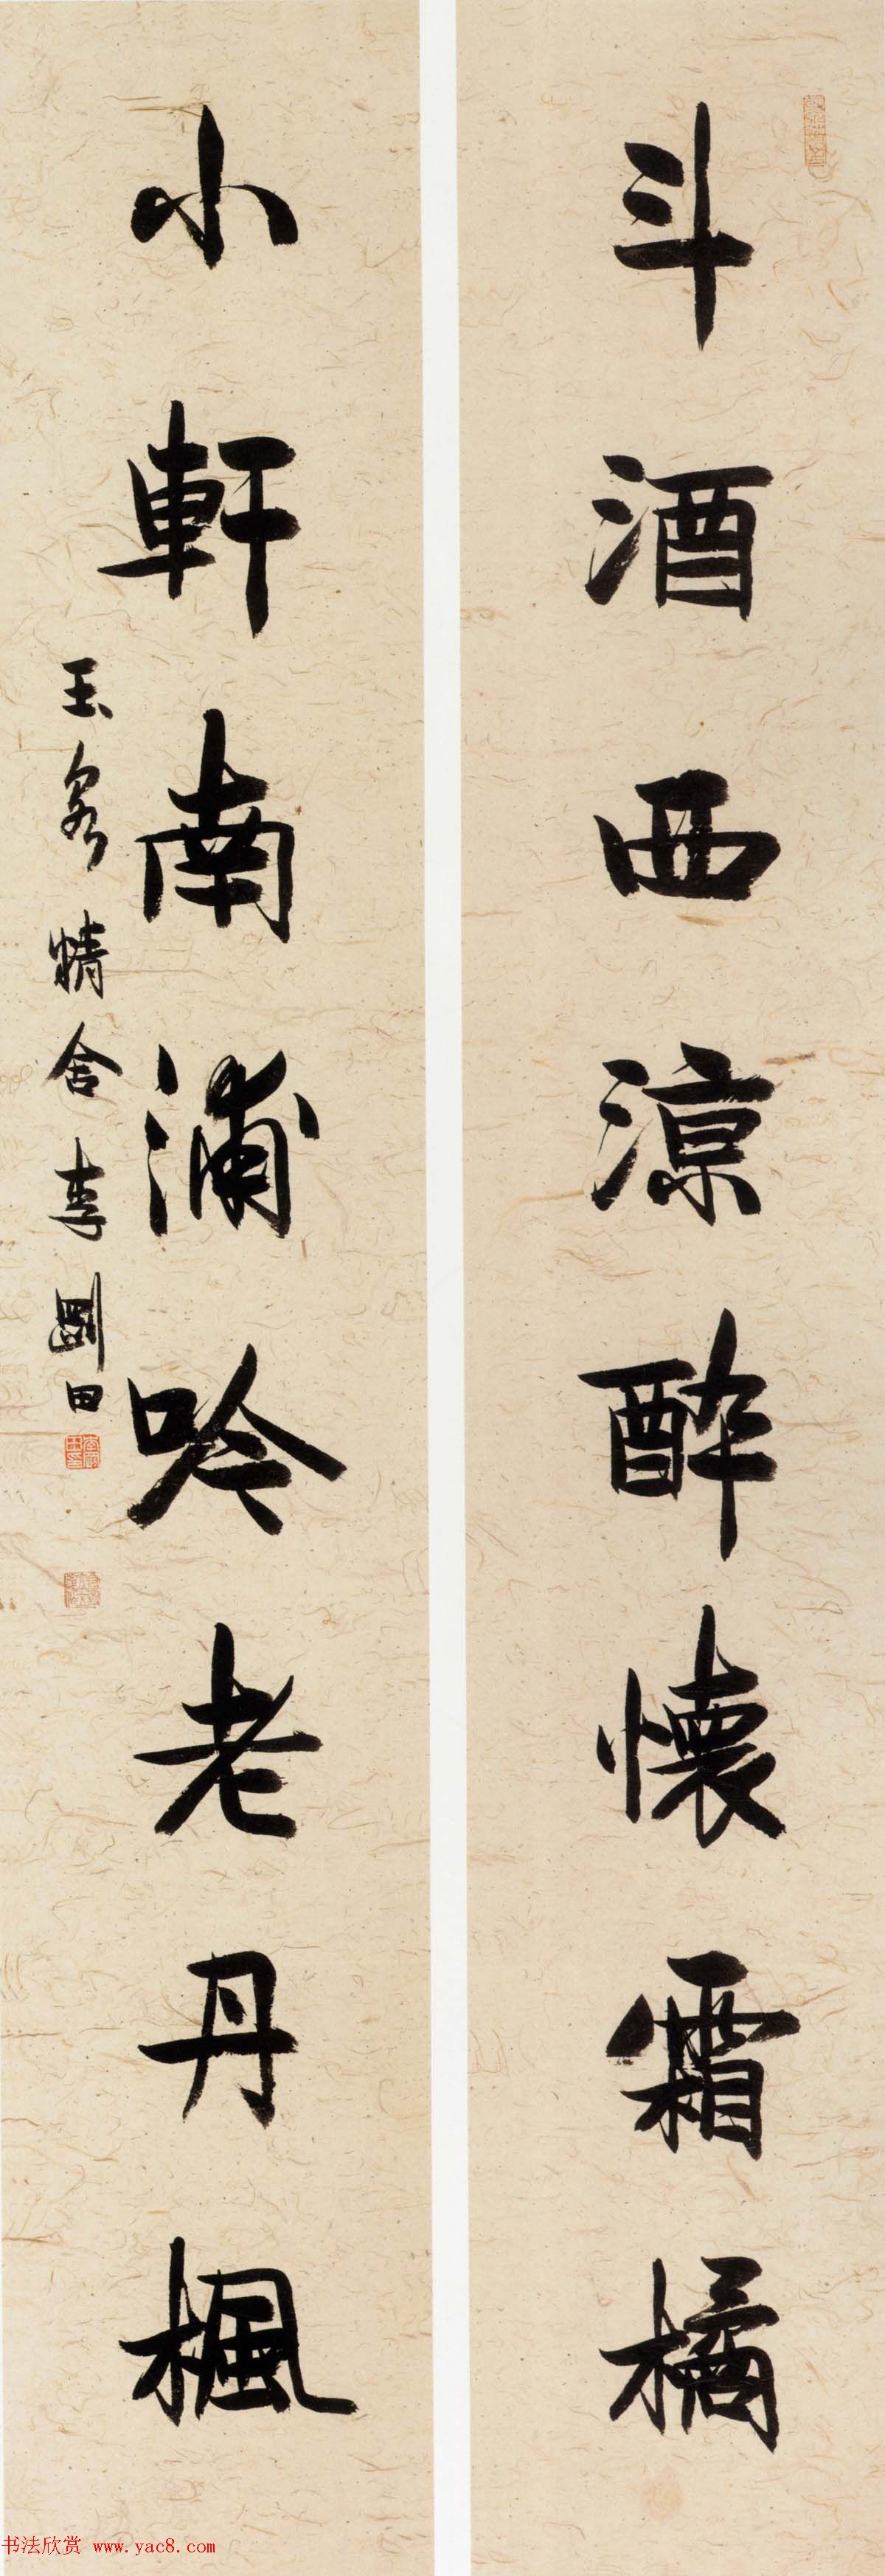 斗酒西涼醉懷霜橘
小軒南浦吟老丹楓
玉泉精舍李剛田
书法欣赏 www.yac8.com